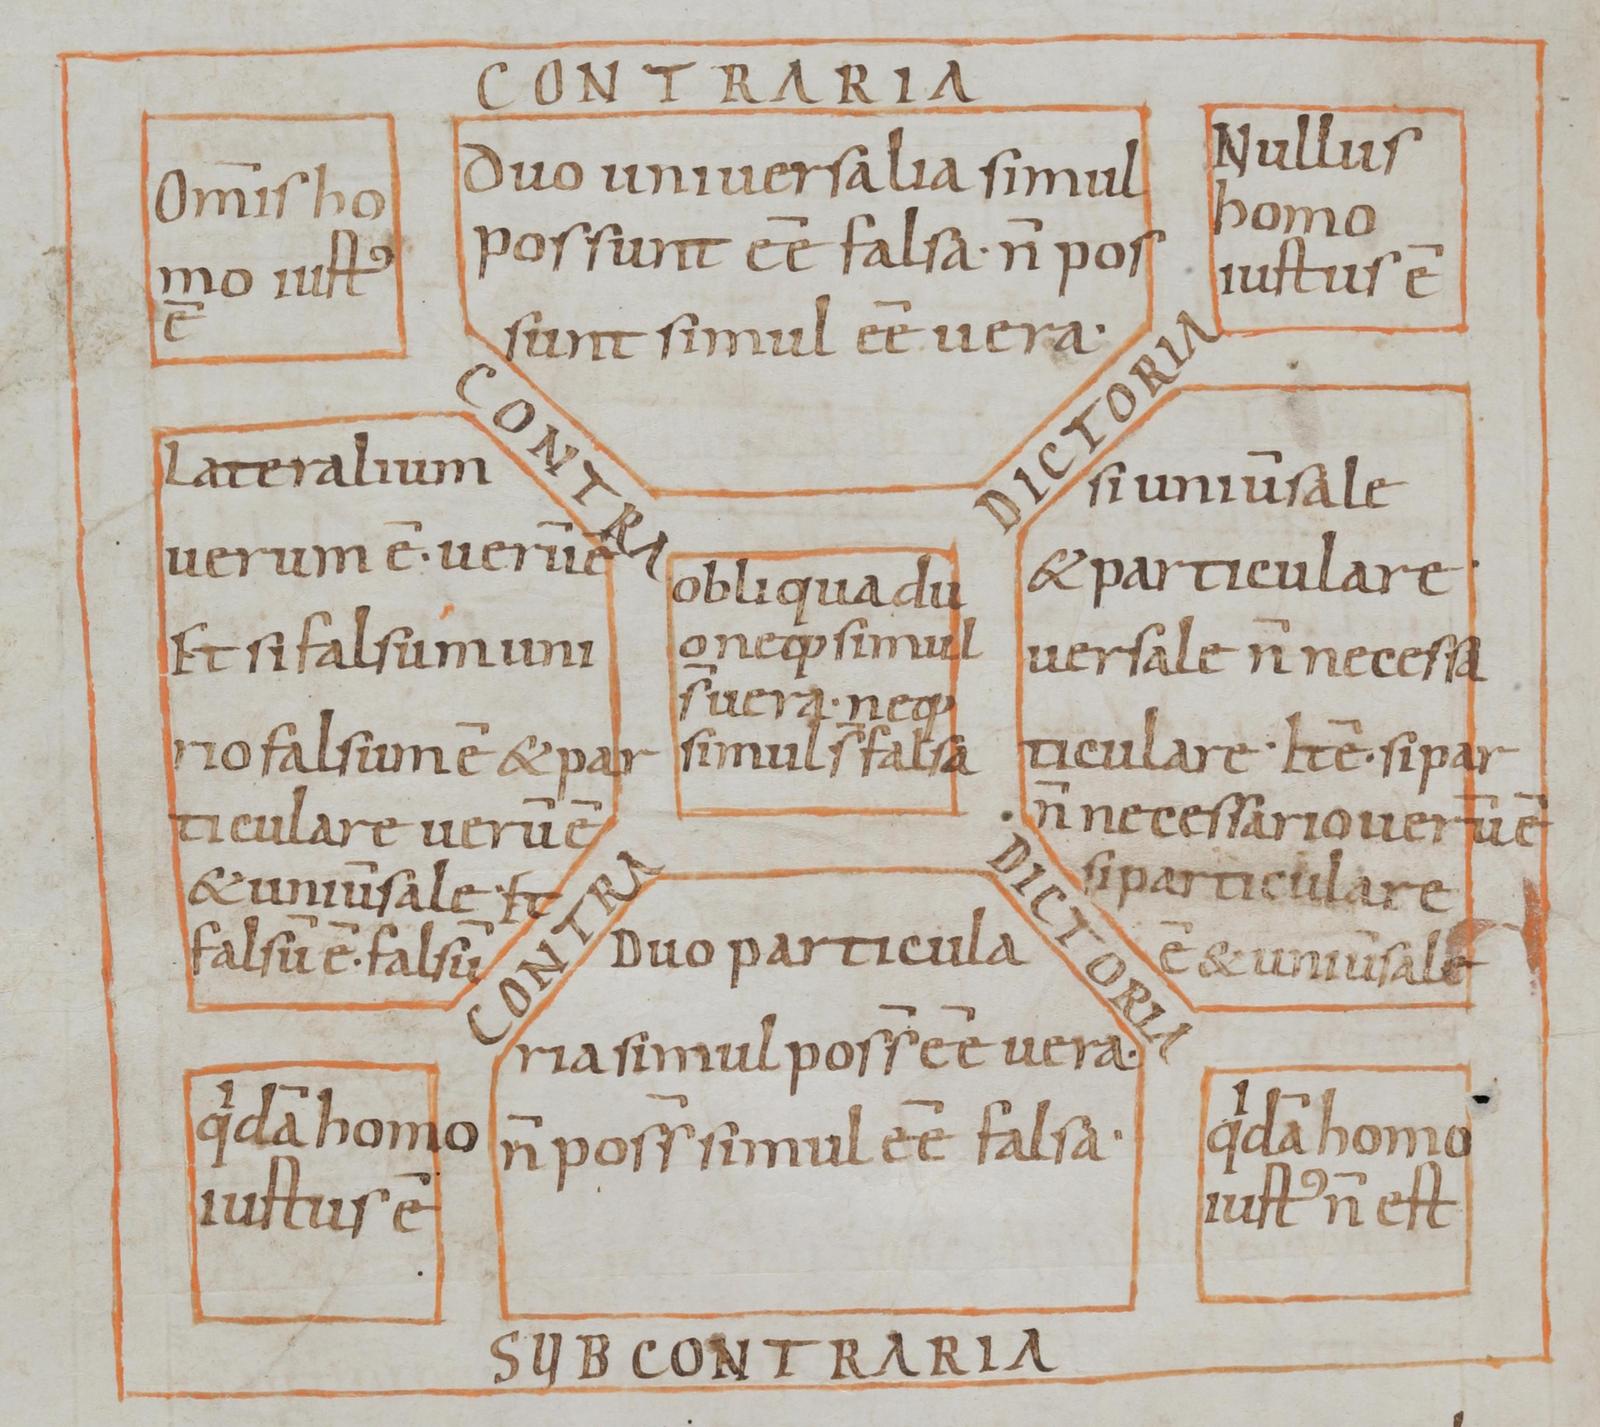 CONTRARIA
Om̄is ho
mo iustꝰ
ē
Duo uniuersalia simul
possunt eē̄ falsa· n̄ pos
sunt simul eē̄ uera·
Nullus
homo
iustus ē
CONTRA
DICTORIA
Lateralium
uerum ē· uerū ē
Et si falsum uni
rio falsum ē & par
ticulare uerū ē
& uniūsale· Et
falsū ē· falsū
obliqua du
o neqꝫ simul
s̄ uera· neqꝫ
simul s̄ falsa
si uniūsale
& particulare·
uersale n̄ necessa
ticulare· Itē· si par
n̄ necessario uerū ē
si particulare
ē & uniūsale
CONTRA
DICTORIA
Duo particula
ria simul poss̄ eē̄ uera·
n̄ poss̄ simul eē̄ falsa·
qͥdā homo
iustus ē
qͥdā homo
iustꝰ n̄ est
SUBCONTRARIA